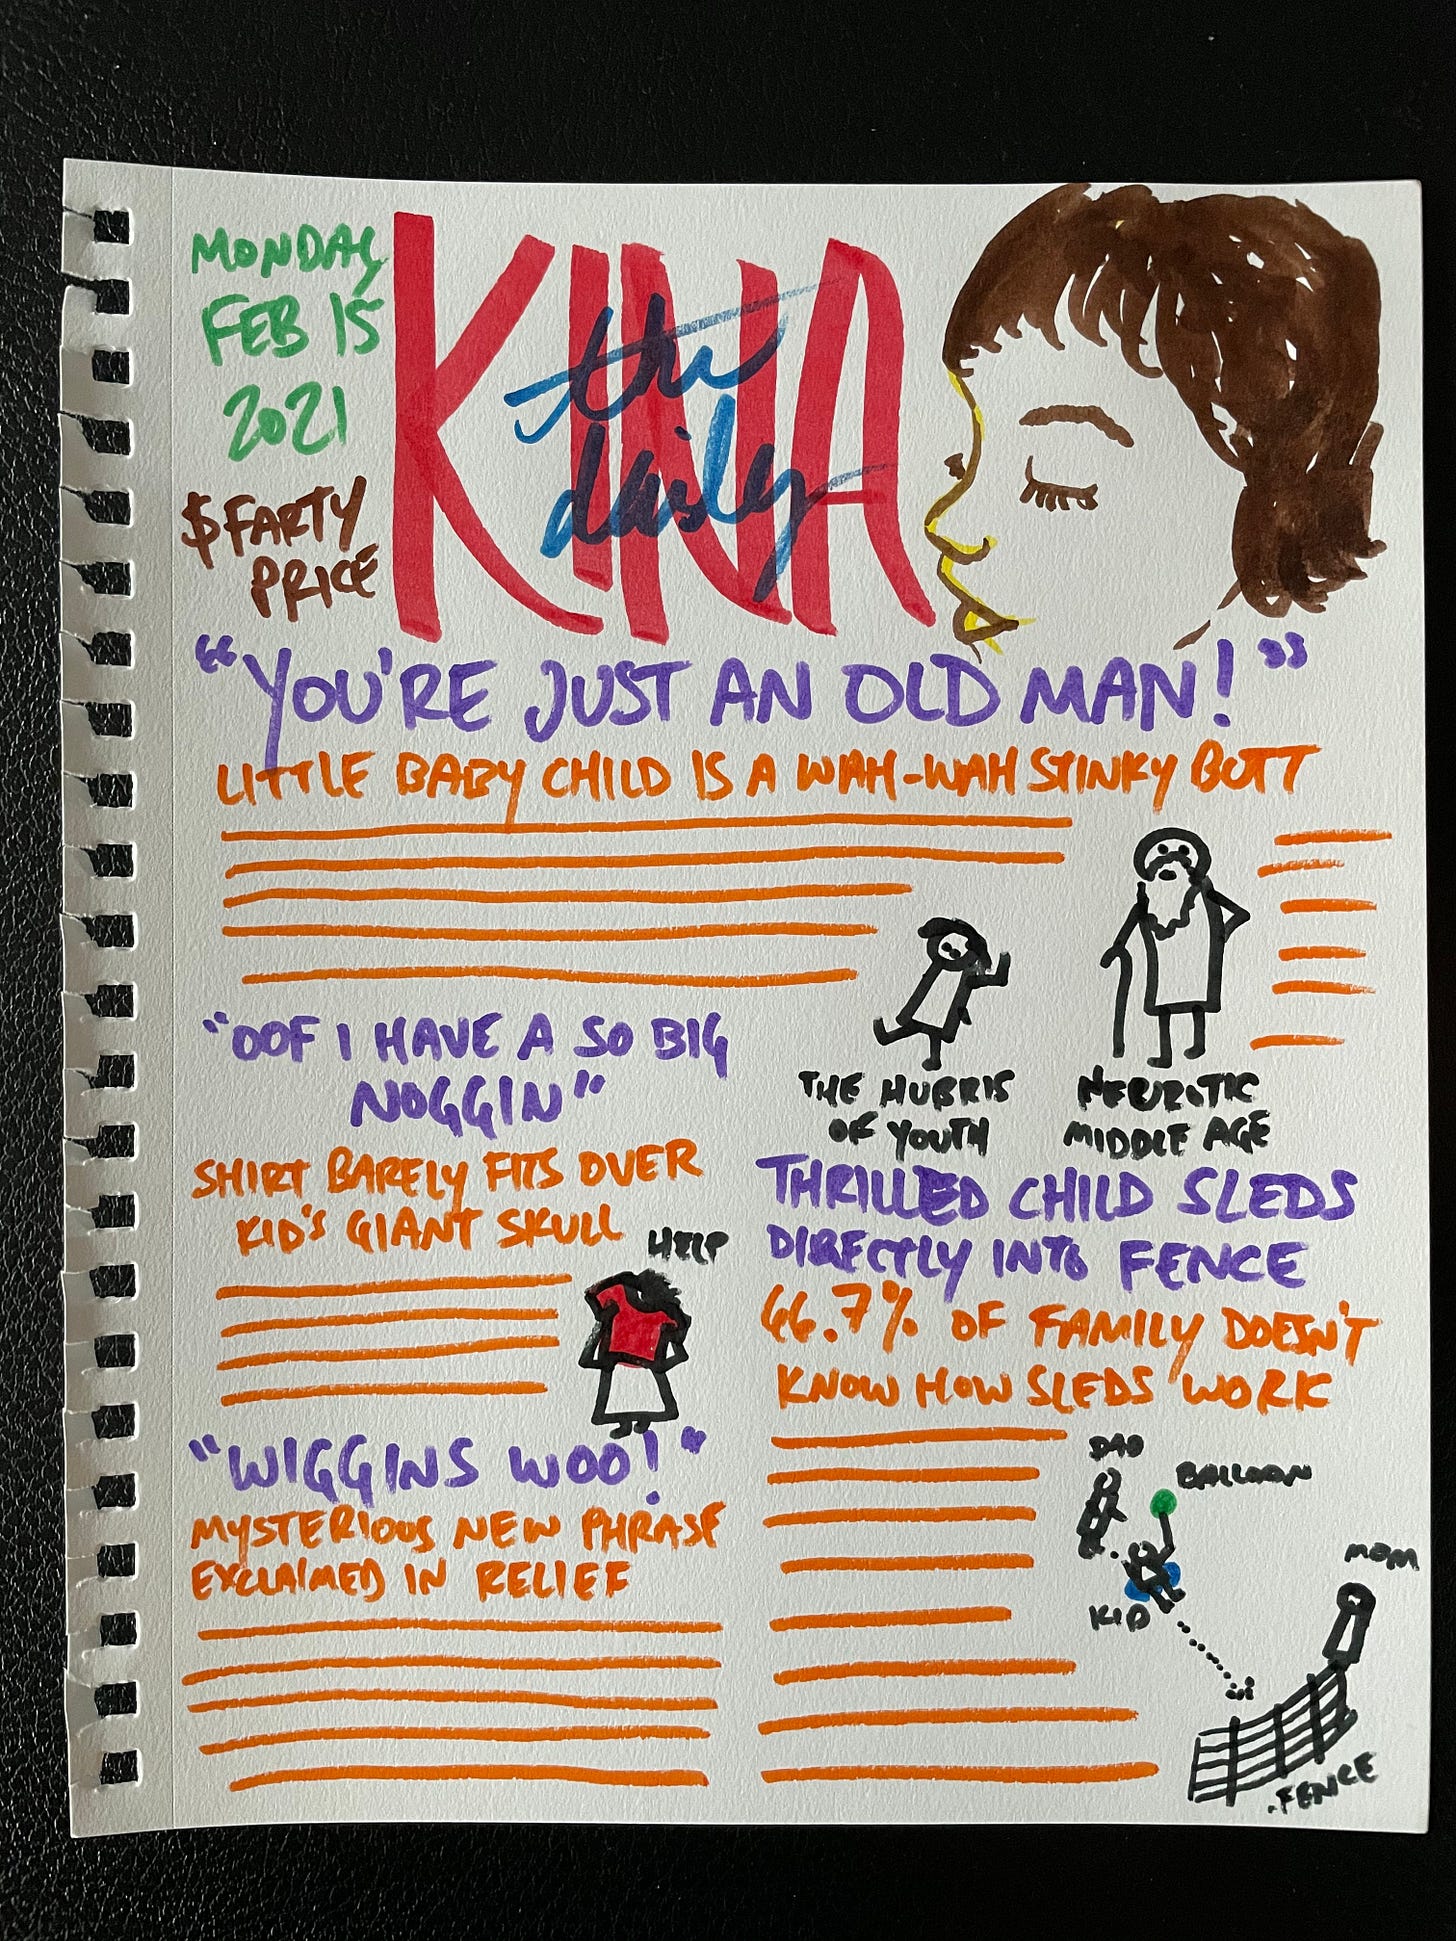 MONDAY
FEB 15
2021
$FARTY
PRICE
KINA
the
daily
"YOU'RE JUST AN OLD MAN!"
LITTLE BABY CHILD IS A WAH-WAH STINKY BUTT
THE HUBRIS
OF YOUTH
NEUROTIC
MIDDLE AGE
"OOF I HAVE A SO BIG
NOGGIN"
SHIRT BARELY FITS OVER
KID'S GIANT SKULL
HELP
"WIGGINS WOO!"
MYSTERIOUS NEW PHRASE
EXCLAIMED IN RELIEF
THRILLED CHILD SLEDS
DIRECTLY INTO FENCE
66.7% OF FAMILY DOESN'T
KNOW HOW SLEDS WORK
DAD
BALLOON
KID
MOM
FENCE